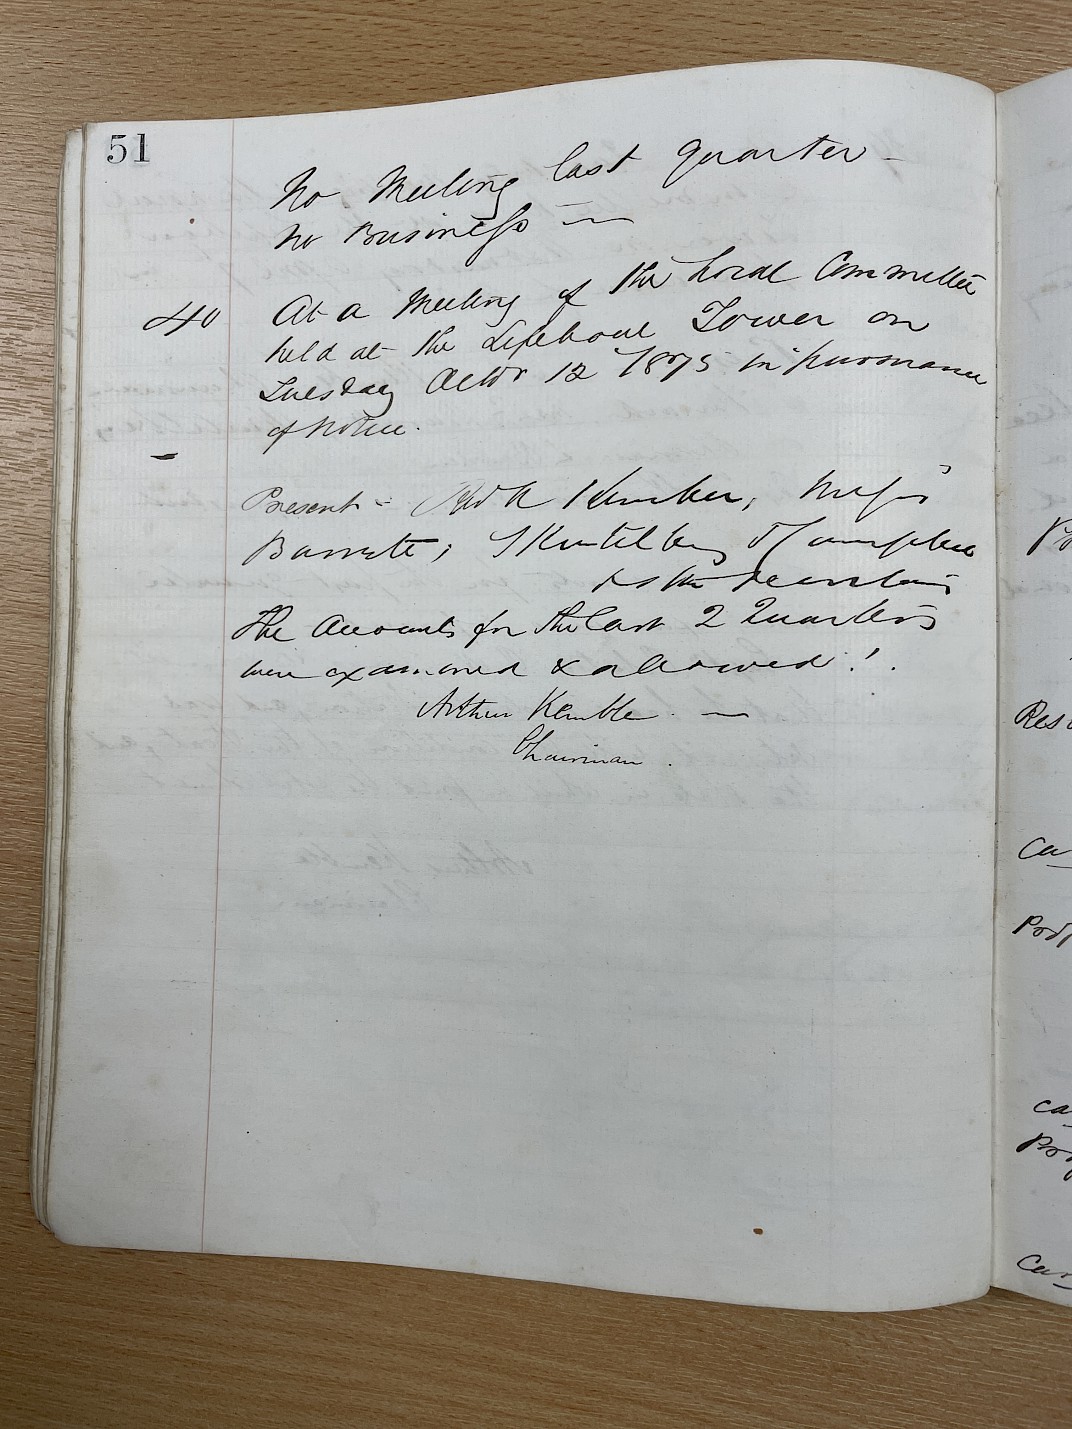 51
No Meeting last quarter -
No Business —
40 At a Meeting of the Local Committee
held at the Lifeboat Tower on
Tuesday Octbr 12 1875 in pursuance
of notice.
Present - Revd A Kemble, Messrs
Barrett, &
& the Secretary
The Accounts for the last 2 Quarters
were examined & allowed!.
Arthur Kemble. —
Chairman.
Res
Ca
Ca
Ca